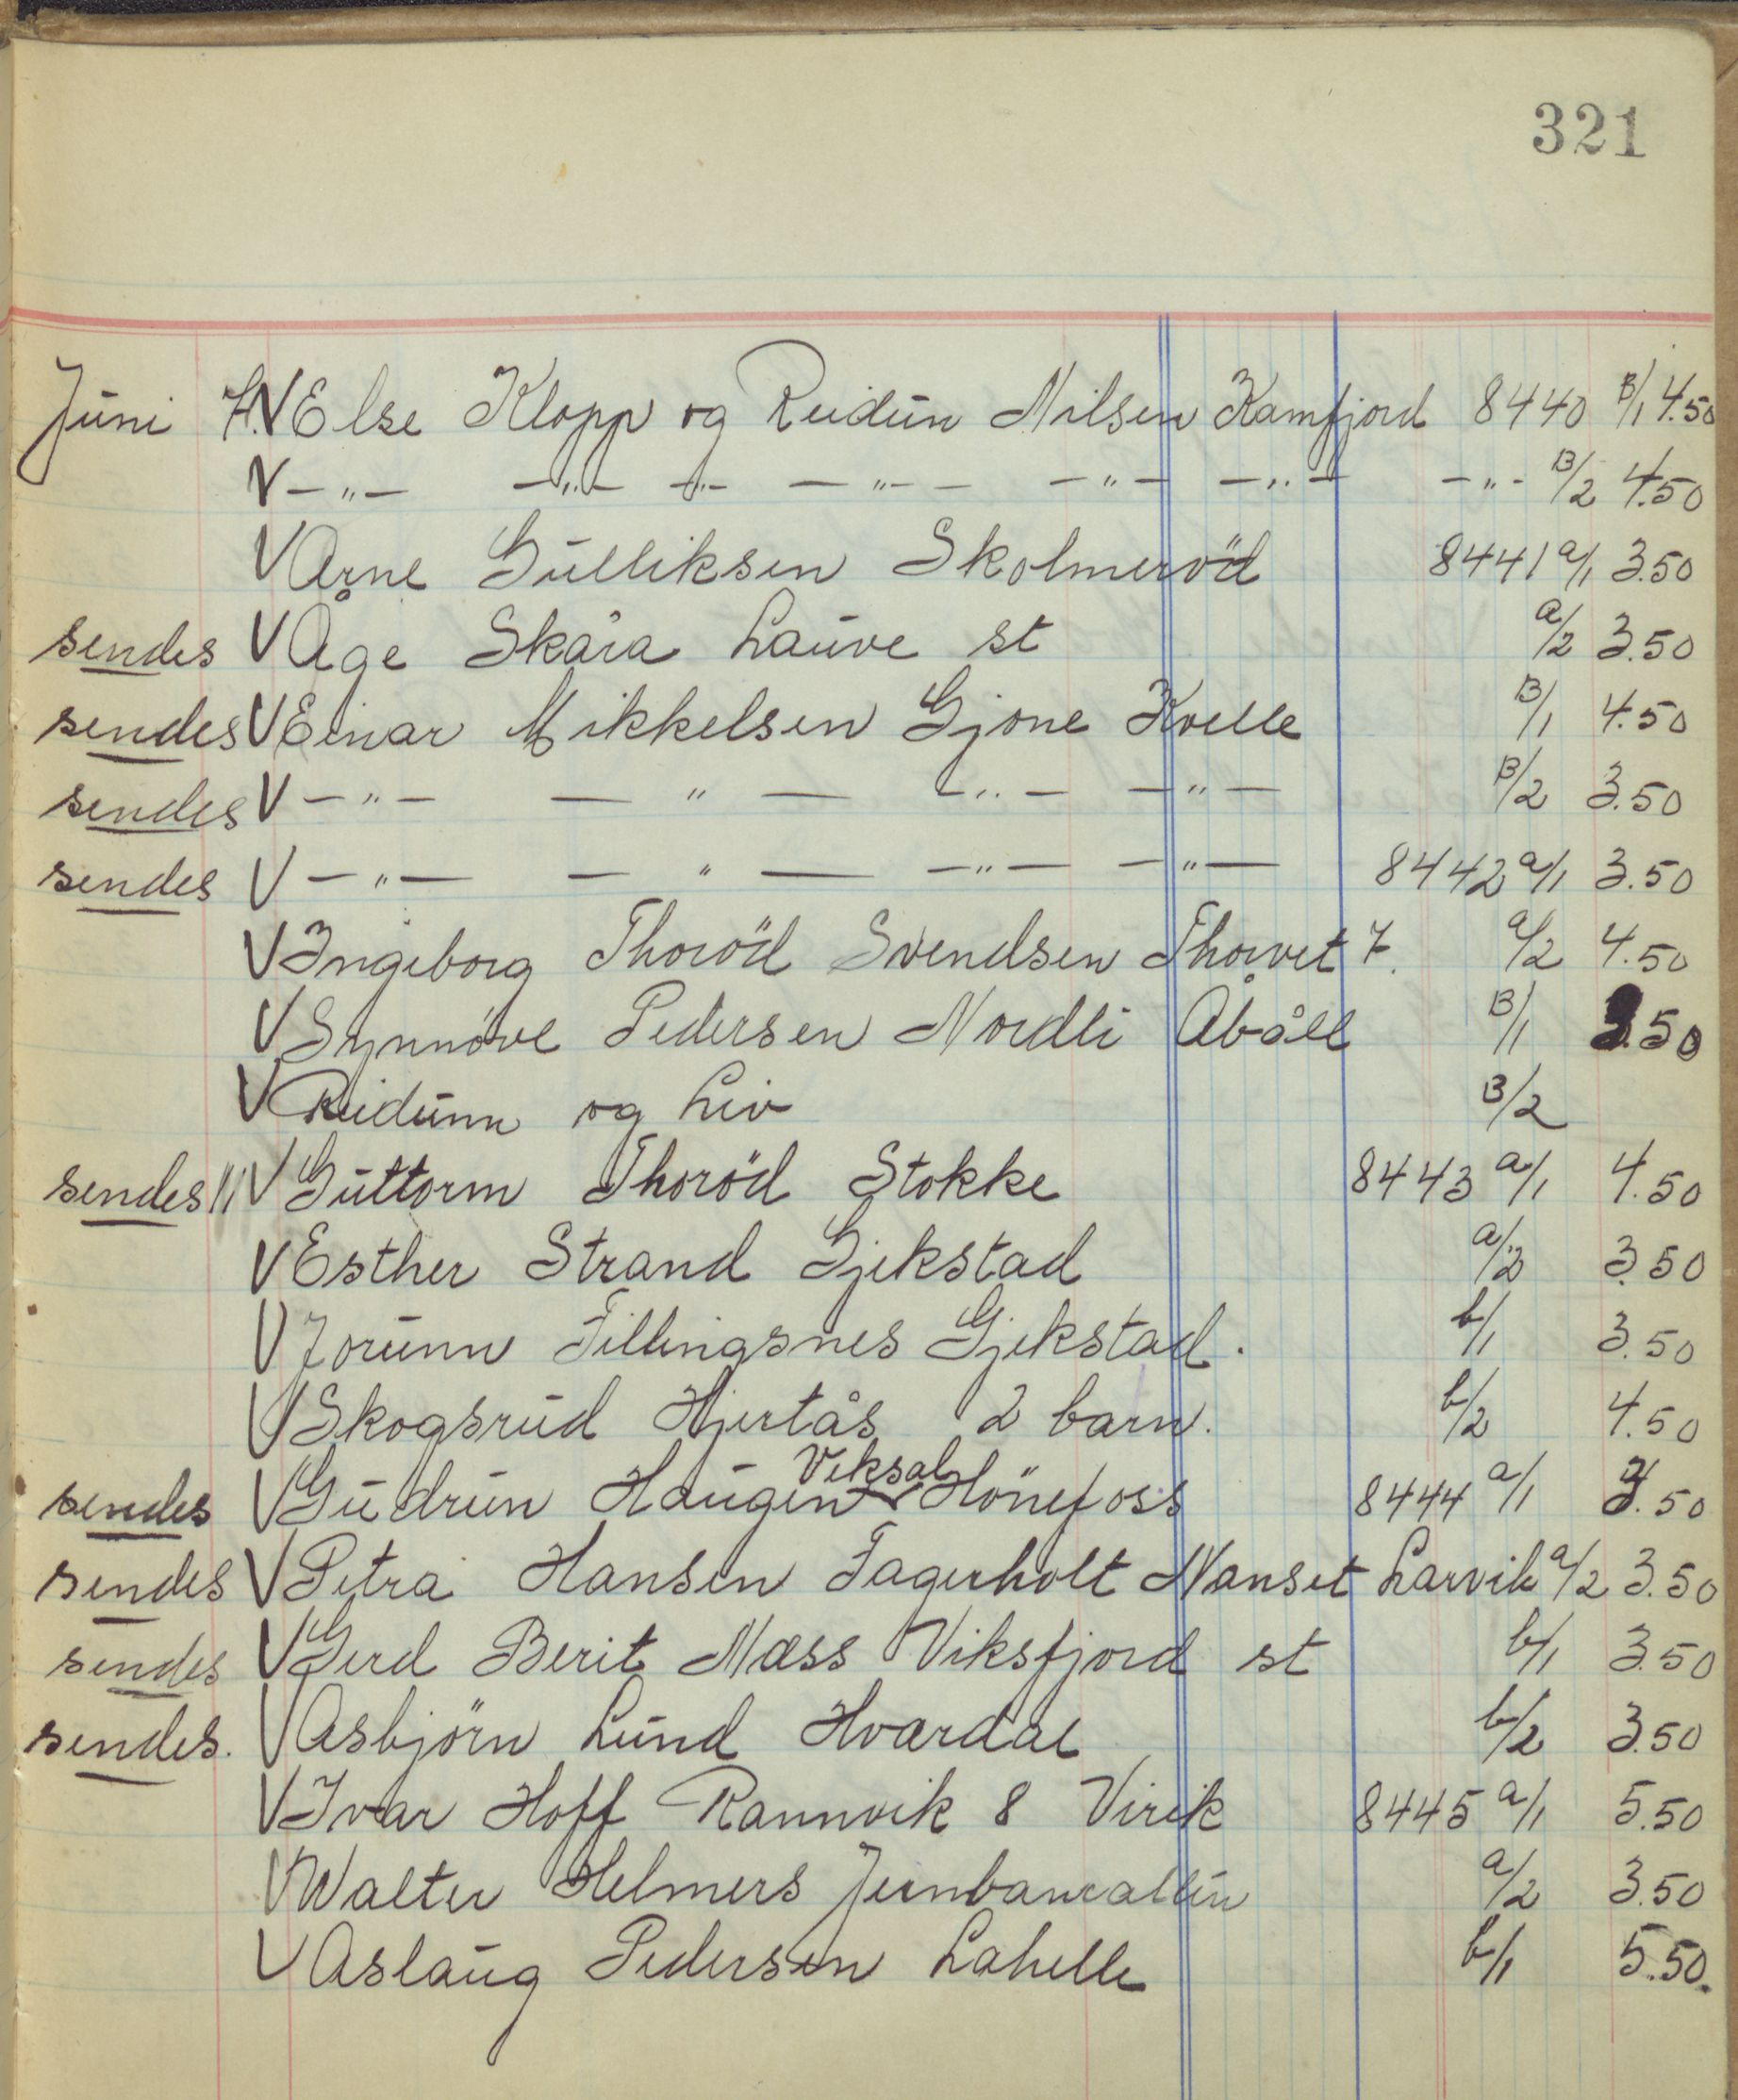 321
Juni 7. V Else Klopp og Reidun Nilsen Kamfjord 8440 B/1 4.50
V —"— —"— —"— —"— —"— —"— —"— B/2 4.50
V Arne Gulliksen Skolmeröd 8441 a/1 3.50
sendes V Åge Skåra Lauve st a/2 3.50
sendes V Einar Mikkelsen Gjone Kvelle B/1 4.50
sendes V —"— —"— —"— —"— B/2 3.50
sendes V —"— —"— —"— —"— 8442 a/1 3.50
V Ingeborg Thoröd Svendsen Thorvet 7. a/2 4.50
V Synnöve Pedersen Nordli Åbåll B/1 3.50
V Reidunn og Liv B/2
sendes 11 V Guttorm Thoröd Stokke 8443 a/1 4.50
V Esther Strand Gjekstad a/2 3.50
V Jorunn Fillingsnes Gjekstad. b/1 3.50
V Skogsrud Hjertås 2 barn. b/2 4.50
Veksal
sendes V Gudrun Haugen Hönefoss 8444 a/1 .50
sendes V Petra Hansen Fagerholt Nanset Larvik a/2 3.50
sendes V Gerd Berit Næss Viksfjord st b/1 3.50
sendes. V Asbjörn Lund Hvardal b/2 3.50
V Ivar Hoff Rannvik 8 Virik 8445 a/1 5.50
V Walter Helmers a/2 3.50
V Aslaug Pedersen Lahelle b/1 5.50.